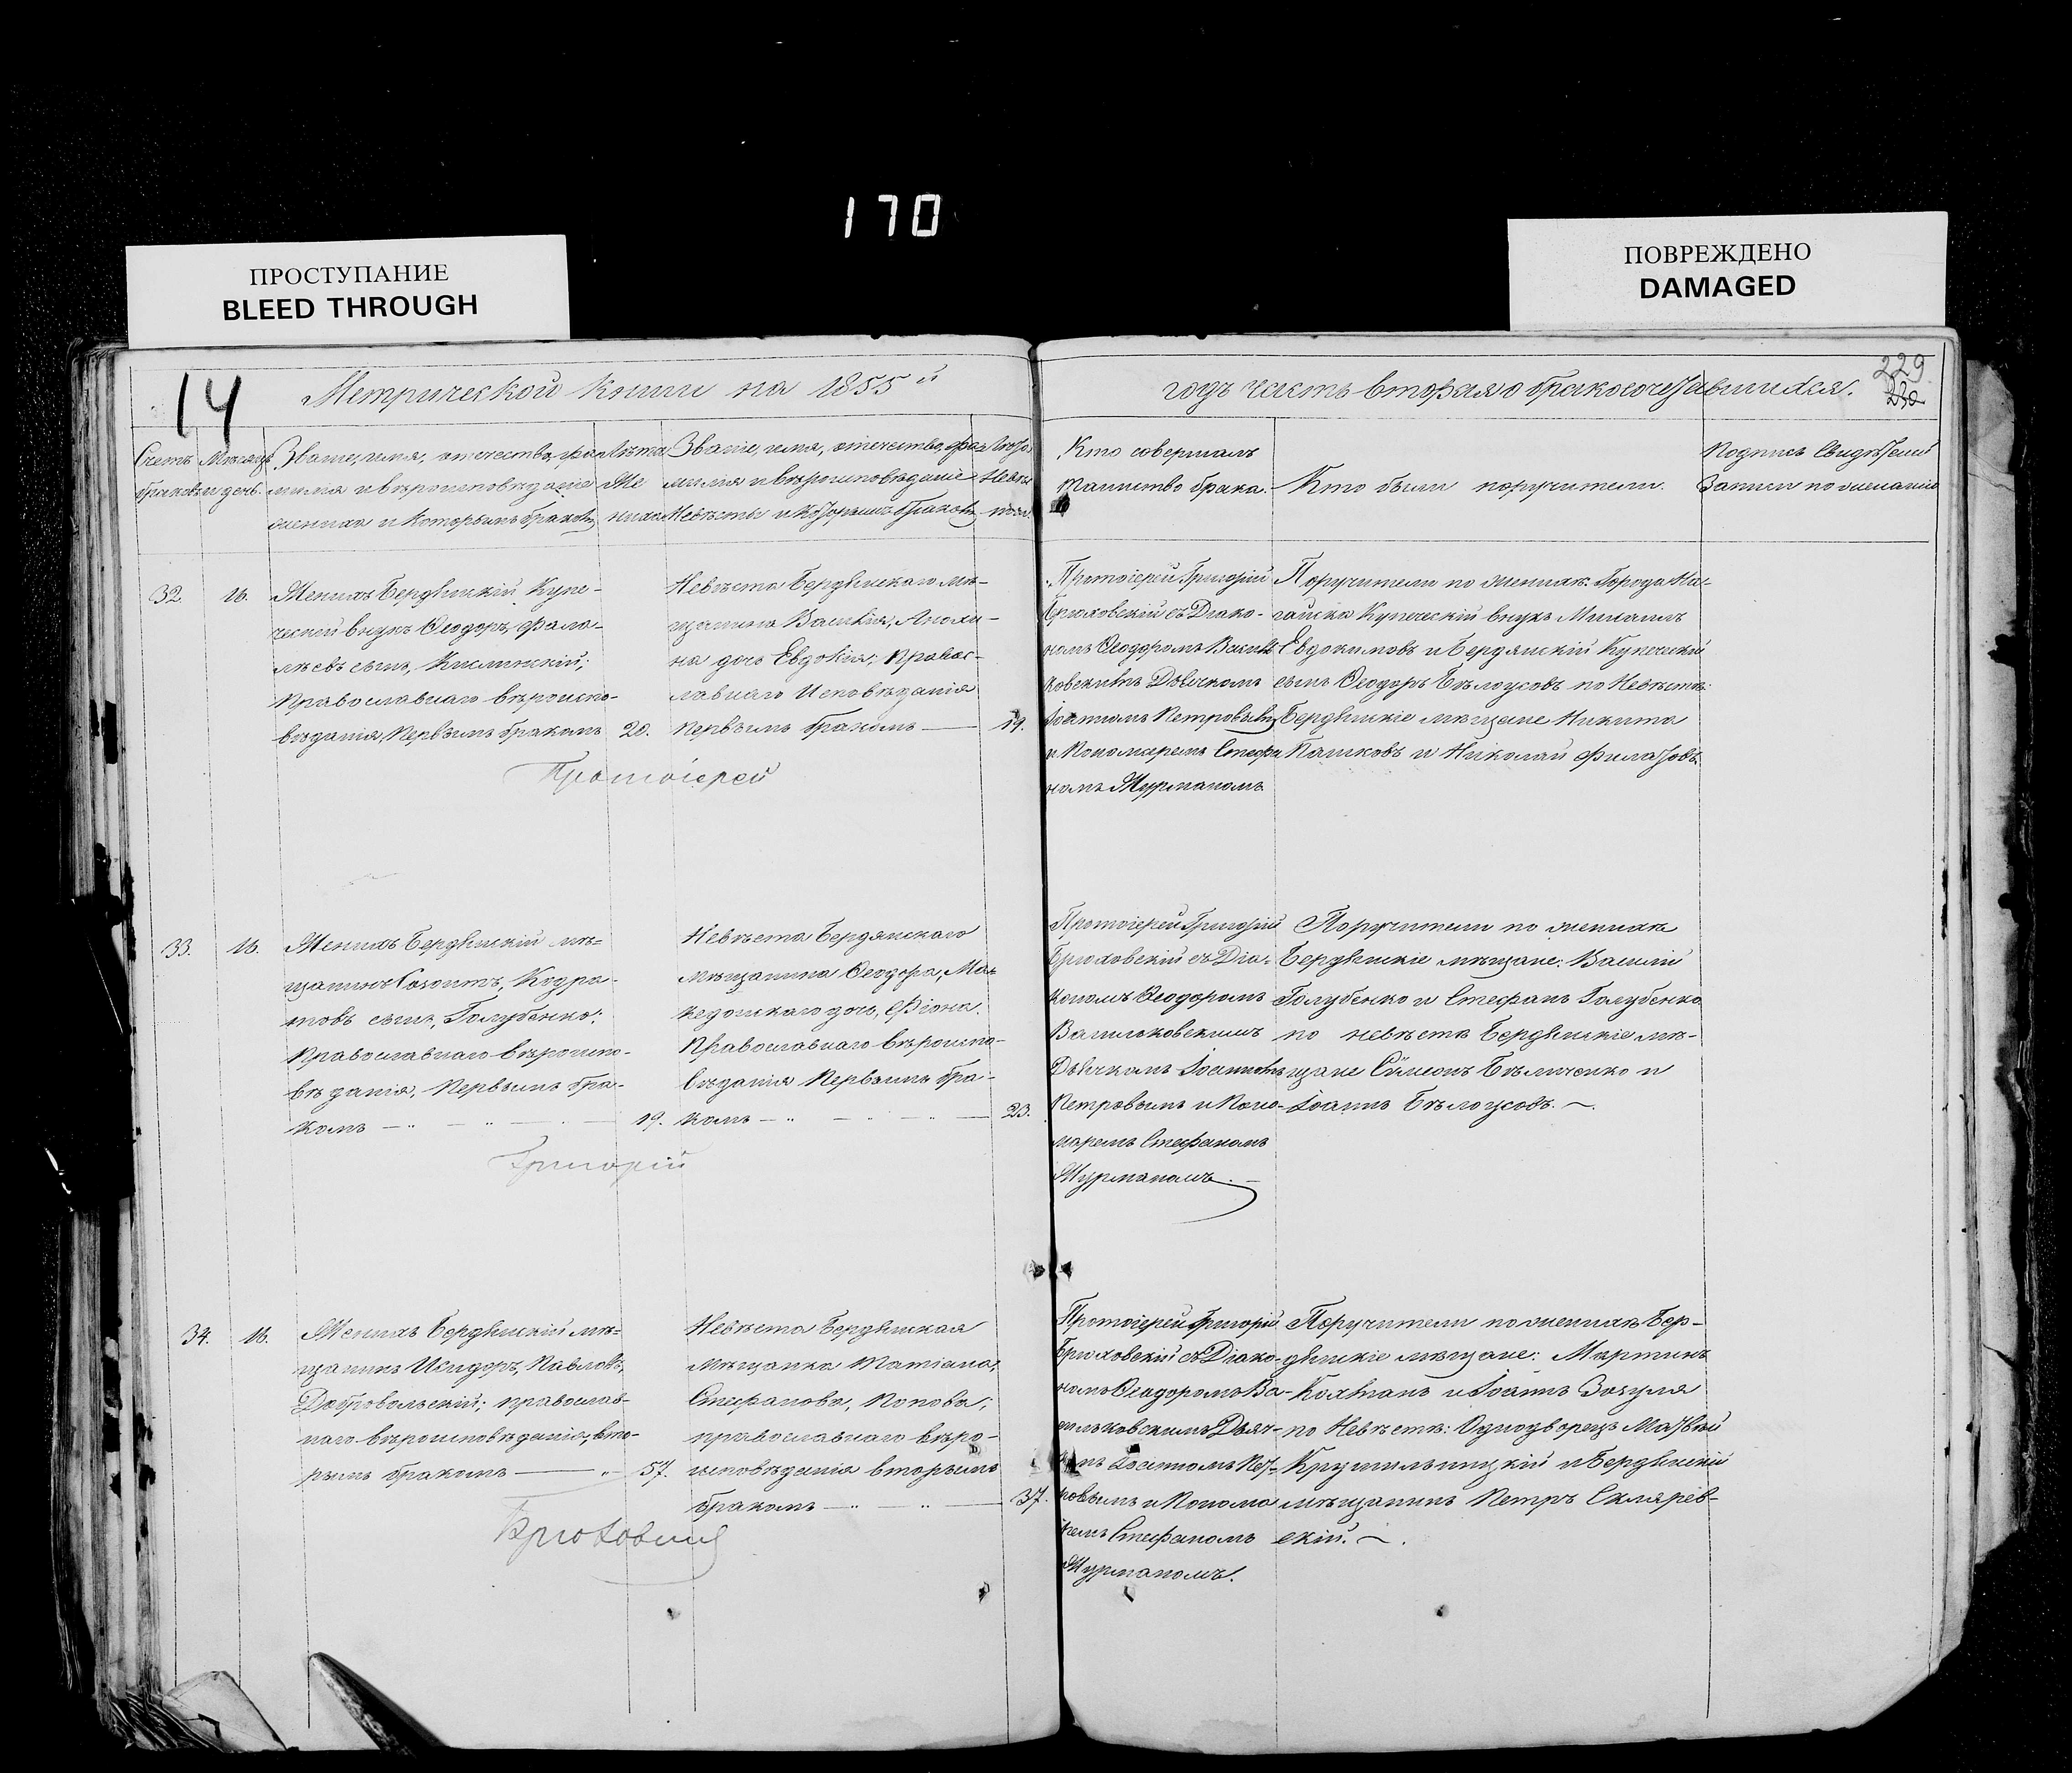 170
ПРОСТУПАНИЕ
BLEED THROUGH
ПОВРЕЖДЕНО
DAMAGED
14
Метрической книги на 1855 й
годъ часть вторая о бракосочетавшихся.
229
230
Счетъ браковъ
Мѣсяцъ и день.
Званіе, имя, отечество, фа-
милія и вѣроисповѣданіе
жениха и которымъ бракомъ
Лѣта
Же
ниха
Званіе, имя, отечество, фа-
милія и вѣроисповѣданіе
Невѣсты и которымъ бракомъ
Лѣта
Невѣ-
сты
Кто совершалъ
таинство брака.
Кто были поручители.
Подпись свидѣтелей
записи по желанію
32.
16.
Женихъ Бердянскій Купе-
ческій внукъ Ѳеодоръ, Фала-
лѣевъ сынъ,
Православнаго вѣроиспо-
вѣданія, Первымъ бракомъ
20.
Невѣста Бердянскаго мѣ-
щанина Василія, Анохи-
на дочь Евдокія; Правос-
лавнаго Исповѣданія
Первымъ бракомъ —
19.
Протоіерей
Протоіерей Григорій
Брюховскій съ Діако-
номъ Ѳеодоромъ
Дьячкомъ
Іоанномъ Петровымъ
и Пономаремъ Стефа
номъ Журманомъ
Поручители по женихѣ: Города На-
гайска Купеческій внукъ Михаилъ
Евдокимовъ и Бердянскій Купеческій
сынъ Ѳеодоръ Бѣлоусовъ по Невѣстѣ:
Бердянскіе мѣщане Никита
Пашковъ и Николай Филатовъ.
33.
16.
Женихъ Бердянскій мѣ-
щанинъ Созонтъ, Кодра-
товъ сынъ, Голубенко;
Православнаго вѣроиспо-
вѣданія, Первымъ бра-
комъ —
19.
Невѣста Бердянскаго
мѣщанина Ѳеодора, Ма-
кедонскаго дочь, Фіона.
Православнаго вѣроиспо-
вѣданія Первымъ бра-
комъ —
23.
Григорій
Протоіерей Григорій
Брюховскій съ Діа-
кономъ Ѳеодоромъ
Васильковскимъ
Дьячкомъ Іоанномъ
Петровымъ и Поно-
маремъ Стефаномъ
Журманомъ. —
Поручители по женихѣ
Бердянскіе мѣщане: Василій
Голубенко и Стефанъ Голубенко
по невѣстѣ Бердянскіе мѣ-
щане Сумеонъ Бѣличенко и
Іоаннъ Бѣлоусовъ. ~.
34.
16.
Женихъ Бердянскій мѣ-
щанинъ Исидоръ, Павловъ,
Добровольскій; православ-
наго вѣроисповѣданія, вто-
рымъ бракомъ —
57.
Невѣста Бердянская
Мѣщанка Татіана,
Стефанова, Попова;
православнаго вѣро-
исповѣданія вторымъ
бракомъ —
37.
Брюховскій
Протоіерей Григорій
Брюховскій съ Діако-
номъ Ѳеодоромъ Ва-
сильковскимъ Дьяч-
комъ Іоанномъ Пет-
ровымъ и Понома
ремъ Стефаномъ
Журманомъ.
Поручители по женихѣ Бер-
дянскіе мѣщане: Мартинъ
и Іоаннъ Зозуля
по Невѣстѣ: Однодворецъ Матвѣй
и Бердянскій
мѣщанинъ Петръ Скляров-
скій. ~.